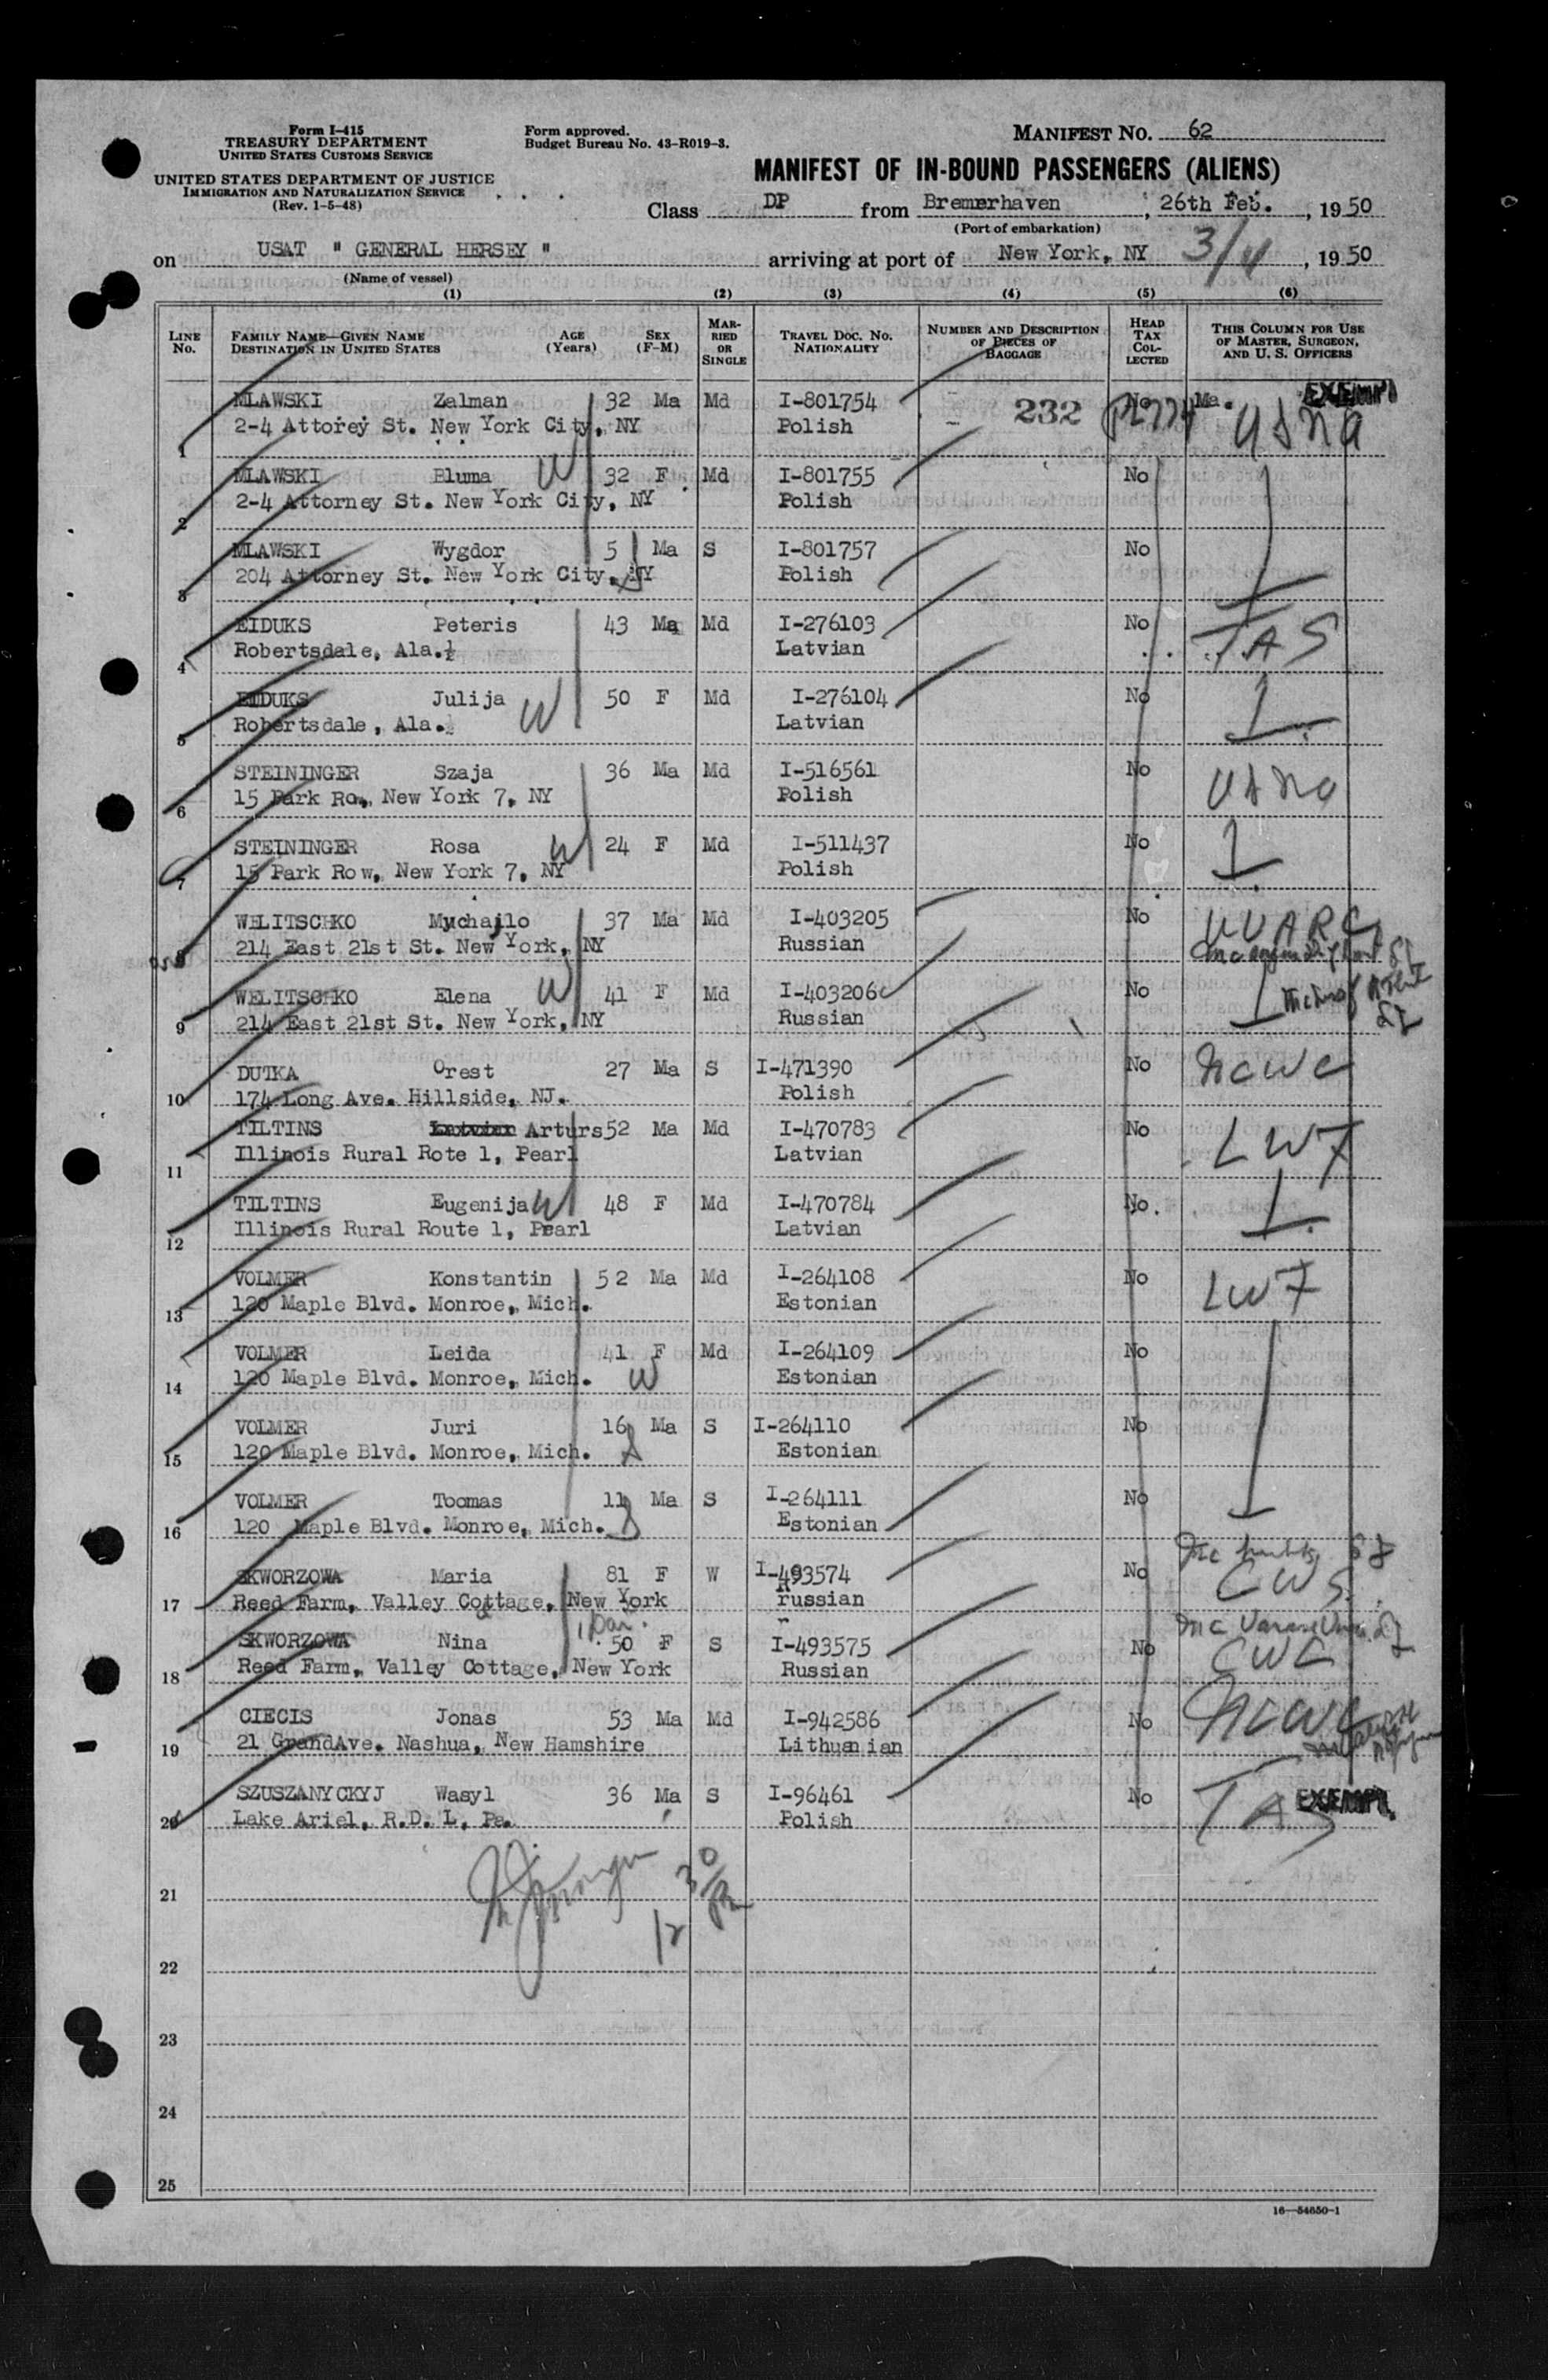 Form I-415
TREASURY DEPARTMENT
UNITED STATES CUSTOMS SERVICE
UNITED STATES DEPARTMENT OF JUSTICE
IMMIGRATION AND NATURALIZATION SERVICE
(Rev. 1-5-48)
Form approved.
Budget Bureau No. 43-R019-3.
MANIFEST NO. 62
MANIFEST OF IN-BOUND PASSENGERS (ALIENS)
Class DP from Bremerhaven, 26th Feb., 1950
(Port of embarkation)
on USAT " GENERAL HERSEY " arriving at port of New York, NY 3/4, 1950
(Name of vessel)
(1) (2) (3) (4) (5) (6)
LINE No. FAMILY NAME—GIVEN NAME DESTINATION IN UNITED STATES AGE (Years) SEX (F-M) MARRIED OR SINGLE TRAVEL DOC. NO. NATIONALITY NUMBER AND DESCRIPTION OF PIECES OF BAGGAGE HEAD TAX COLLECTED THIS COLUMN FOR USE OF MASTER, SURGEON, AND U. S. OFFICERS
MLAWSKI Zalman 32 Ma Md I-801754 232 No Ma. EXEMPT
1 2-4 Attorey St. New York City, NY Polish USNA
MLAWSKI Bluma W 32 F Md I-801755 No
2 2-4 Attorney St. New York City, NY Polish
MLAWSKI Wygdor 5 Ma S I-801757 No
3 204 Attorney St. New York City, NY Polish
EIDUKS Peteris 43 Ma Md I-276103 No TAS
4 Robertsdale, Ala. Latvian
EIDUKS Julija W 50 F Md I-276104 No
5 Robertsdale, Ala. Latvian
STEININGER Szaja 36 Ma Md I-516561 No USNA
6 15 Park Row, New York 7, NY Polish
STEININGER Rosa W 24 F Md I-511437 No
7 15 Park Row, New York 7, NY Polish
WELITSCHKO Mychajlo 37 Ma Md I-403205 No UUARC
8 214 East 21st St. New York, NY Russian
WELITSCHKO Elena W 41 F Md I-403206 No
9 214 East 21st St. New York, NY Russian
DUTKA Orest 27 Ma S I-471390 No NCWC
10 174 Long Ave. Hillside, NJ. Polish
TILTINS Arturs 52 Ma Md I-470783 No LWF
11 Illinois Rural Rote 1, Pearl Latvian
TILTINS Eugenija W 48 F Md I-470784 No.
12 Illinois Rural Route 1, Pearl Latvian
VOLMER Konstantin 52 Ma Md I-264108 No LWF
13 120 Maple Blvd. Monroe, Mich. Estonian
VOLMER Leida 41 F Md I-264109 No
14 120 Maple Blvd. Monroe, Mich. W Estonian
VOLMER Juri 16 Ma S I-264110 No
15 120 Maple Blvd. Monroe, Mich. Estonian
VOLMER Toomas 11 Ma S I-264111 No
16 120 Maple Blvd. Monroe, Mich. Estonian
SKWORZOWA Maria 81 F W I-493574 No CWS
17 Reed Farm, Valley Cottage, New York russian
SKWORZOWA Nina 50 F S I-493575 No
18 Reed Farm, Valley Cottage, New York Russian
CIECIS Jonas 53 Ma Md I-942586 No NCWC
19 21 GrandAve. Nashua, New Hamshire Lithuanian
SZUSZANYCKYJ Wasyl 36 Ma S I-96461 No TAS EXEMPT
20 Lake Ariel, R.D. 1, Pa. Polish
21
22
23
24
25
16—54650-1